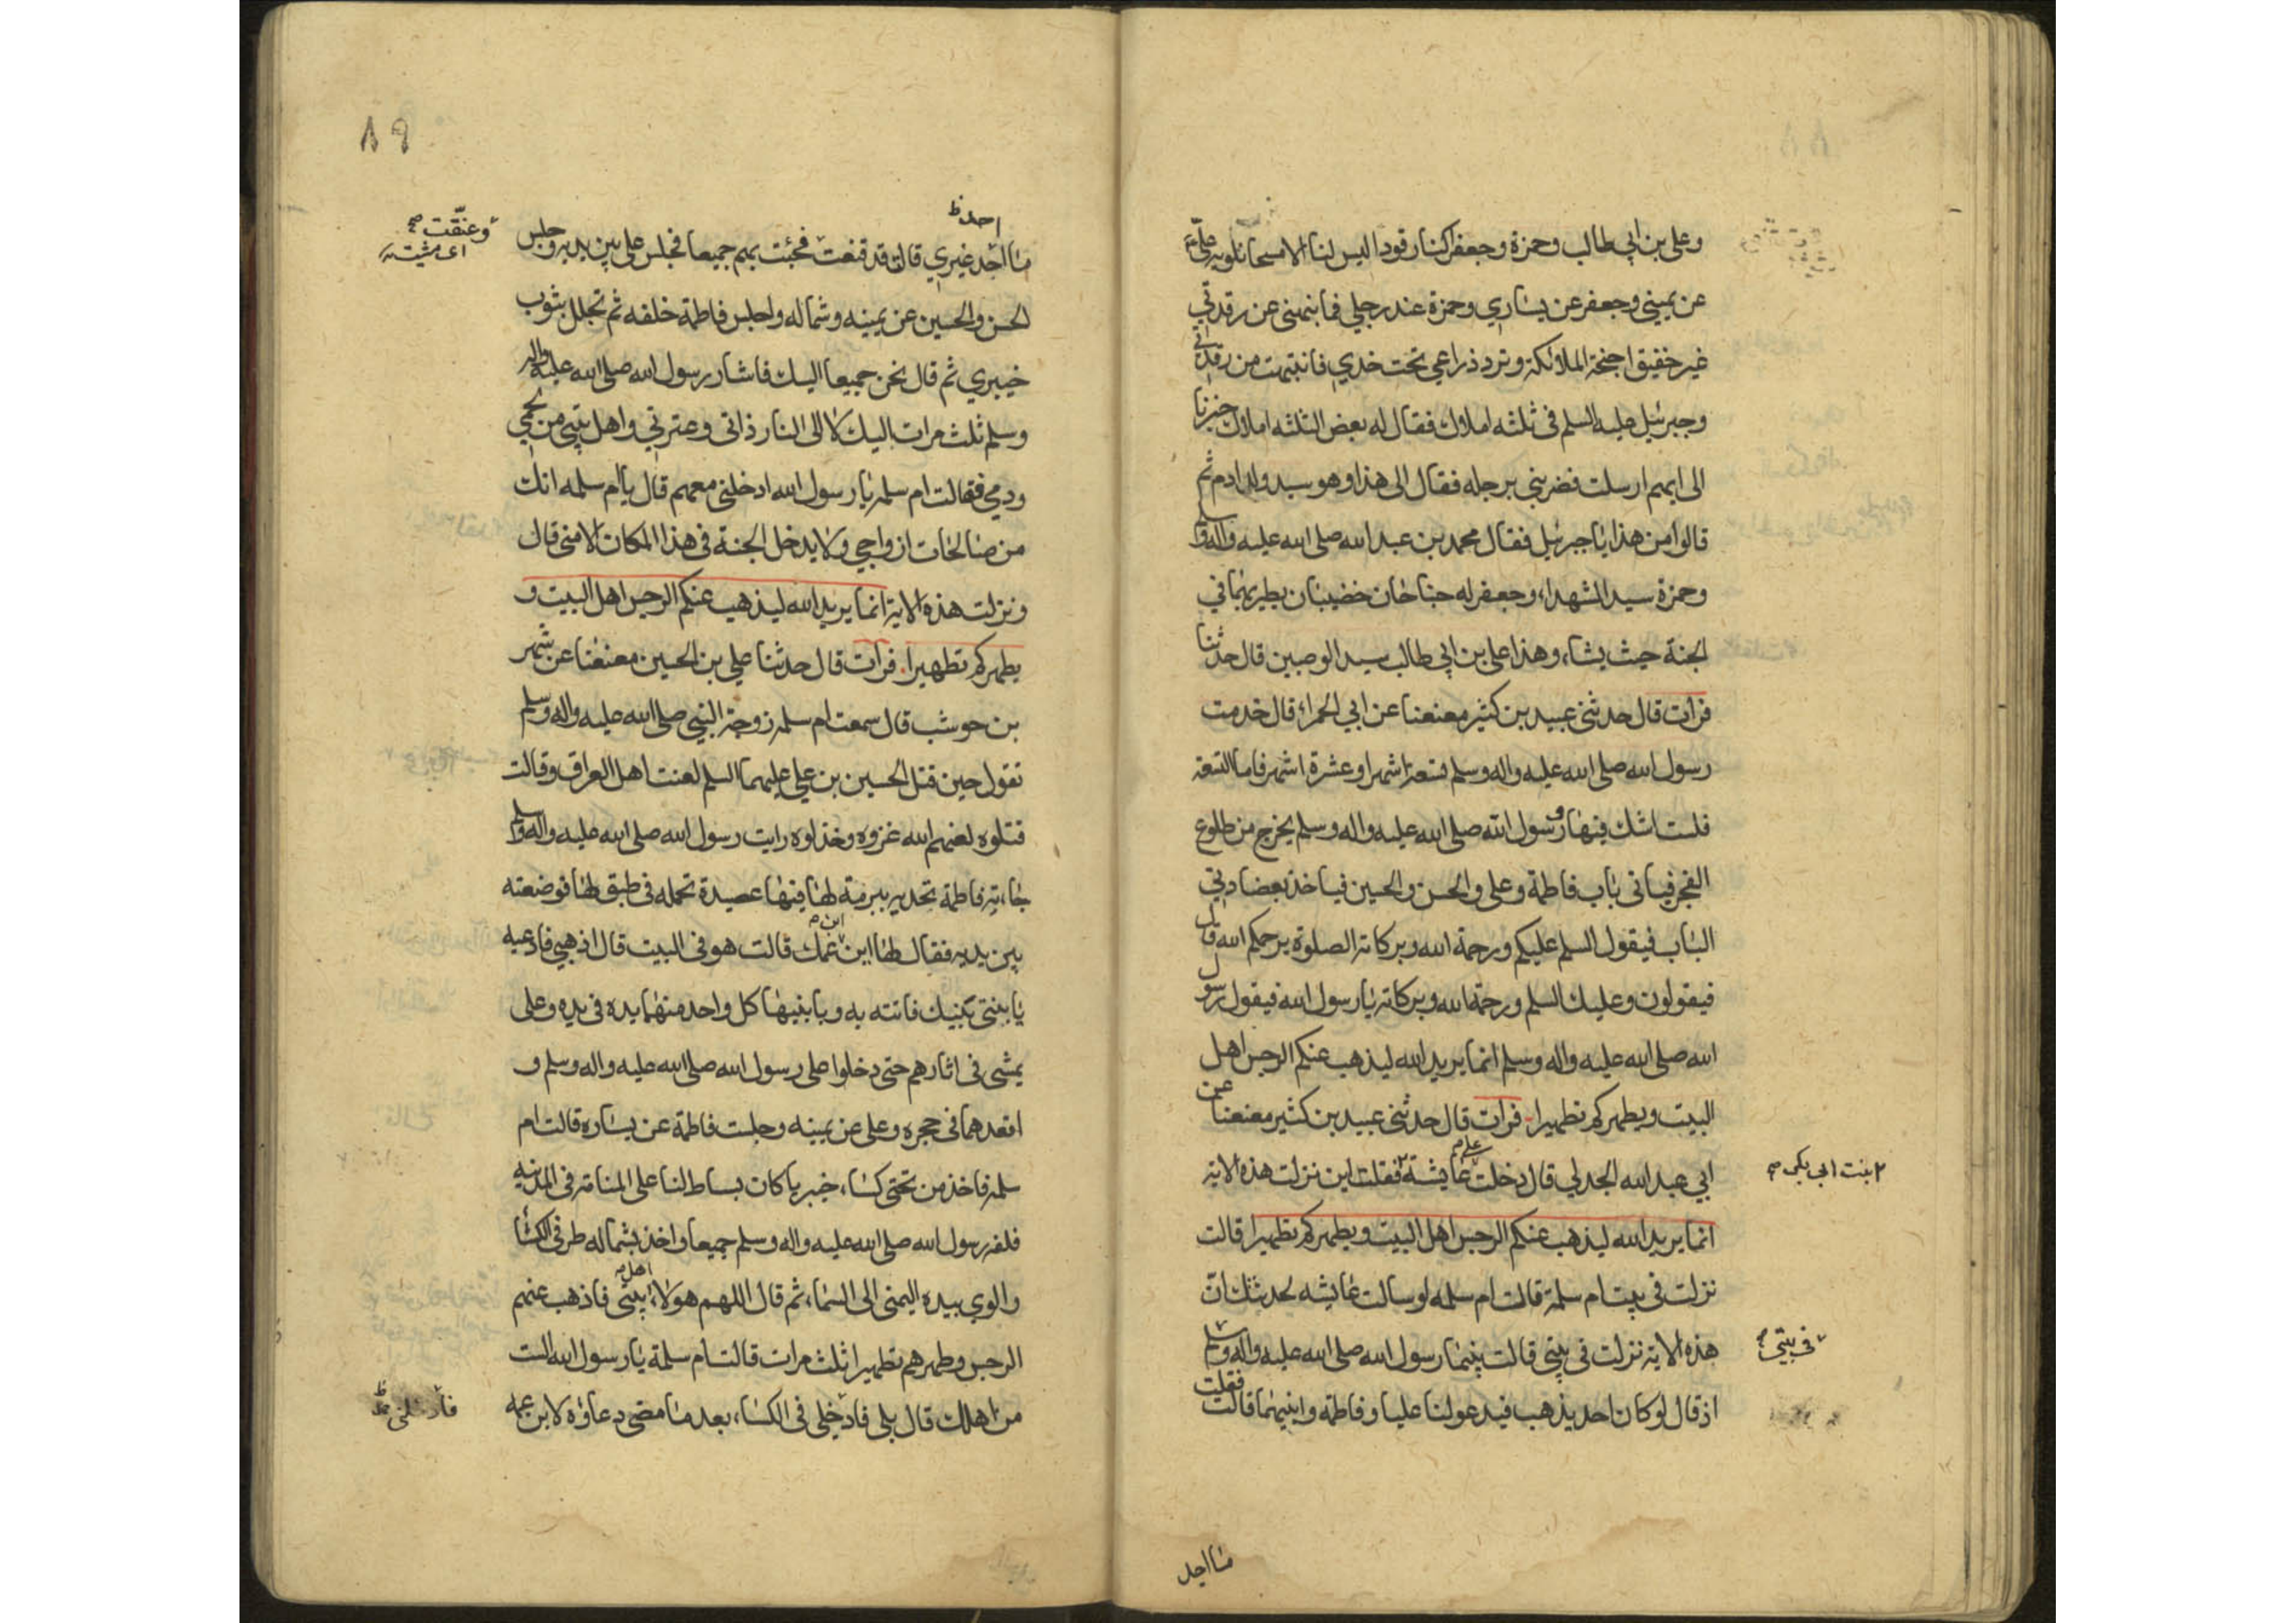 وعلى بن ابي طالب وحمزة وجعفر كنا رقودا ليس لنا الا مسحا نلويه علي
عن يميني وجعفر عن يساري وحمزة عند رجلي فما نبهني عن رقدتي
غير خفيق اجنحة الملائكة وترد ذراعي تحت خدي فانتبهت من رقدتي
وجبرئيل عليه السلم فى ثلثه املاك فقال له بعض الثلثه املاك خبرنا
الى ايهم ارسلت فضربني برجله فقال الى هذا وهو سيد ولد ادم ثم
قالوا من هذا يا جبرئيل فقال محمد بن عبد الله صلى الله عليه واله وسلم
وحمزة سيد الشهداء وجعفر له جناحان خضيبان يطير بهما في
الجنة حيث يشاء وهذا على بن ابي طالب سيد الوصيين قال حدثنا
فرات قال حدثنى عبيد بن كثير معنعنا عن ابي الحمراء قال خدمت
رسول الله صلى الله عليه واله وسلم تسعة اشهر او عشرة اشهر فاما التسعة
فلست اشك فيها ورسول الله صلى الله عليه واله وسلم يخرج من طلوع
الفجر فياتى باب فاطمة وعلى والحسن والحسين فياخذ بعضادتي
الباب فيقول السلم عليكم ورحمة الله وبركاته الصلوة يرحمكم الله قال
فيقولون وعليك السلم ورحمة الله وبركاته يا رسول الله فيقول رسول
الله صلى الله عليه واله وسلم انما يريد الله ليذهب عنكم الرجس اهل
البيت ويطهركم تطهيرا. فرات قال حدثنى عبيد بن كثير معنعنا عن
ابي عبد الله الجدلي قال دخلت على عايشة فقلت اين نزلت هذه الاية
٢ بنت ابي بكر صح
انما يريد الله ليذهب عنكم الرجس اهل البيت ويطهركم تطهيرا قالت
نزلت فى بيت ام سلمة قالت ام سلمه لو سالت عايشه لحدثتك ان
هذه الاية نزلت فى بيتى قالت بينما رسول الله صلى الله عليه واله وسلم
فى بيتي
اذ قال لو كان احد يذهب فيدعو لنا عليا وفاطمة وابنيهما قالت فقلت
ما احد
٨٩
احد ظ
ما اجد غيري قالت قد قنعت فجئت بهم جميعا فجلس على بين يديه وجلس
وعنقت صح
اى مشيت
الحسن والحسين عن يمينه وشماله واجلس فاطمة خلفه ثم تجلل بثوب
خيبري ثم قال نحن جميعا اليك فاشار رسول الله صلى الله عليه واله
وسلم ثلث مرات اليك لا الى النار ذاتى وعترتي واهل بيتي من لحمي
ودمي فقالت ام سلمه يا رسول الله ادخلنى معهم قال يا ام سلمه انك
من صالحات ازواجي ولا يدخل الجنة فى هذا المكان الا منى قال
ونزلت هذه الاية انما يريد الله ليذهب عنكم الرجس اهل البيت و
يطهركم تطهيرا. فرات قال حدثنا علي بن الحسين معنعنا عن شهر
بن حوشب قال سمعت ام سلمه زوجة النبي صلى الله عليه واله وسلم
تقول حين قتل الحسين بن علي عليهما السلم لعنت اهل العراق وقالت
قتلوه لعنهم الله غزوه وخذلوه رايت رسول الله صلى الله عليه واله وسلم
جاءته فاطمة تحديه ببرمة لها فيها عصيدة تحمله فى طبق لها فوضعته
بين يديه فقال لها اين ابن عمك قالت هو فى البيت قال اذهبي فادعيه
يا بنتى بابنيك فاتته به وبابنيها كل واحد منهما يده فى يده وعلى
يمشى فى اثارهم حتى دخلوا على رسول الله صلى الله عليه واله وسلم و
اقعدهما فى حجره وعلى عن يمينه وجلست فاطمة عن يساره قالت ام
سلمه فاخذ من تحتى كساء خيبريا كان بساط لنا على المنامة فى المدينه
فلفه رسول الله صلى الله عليه واله وسلم جميعا واخذ بشماله طرفى الكساء
والوي بيده اليمنى الى السماء ثم قال اللهم هولاء اهل بيتى فاذهب عنهم
الرجس وطهرهم تطهيرا ثلث مرات قالت ام سلمة يا رسول الله الست
من اهلك قال بلى فادخلى فى الكساء بعد ما مضى دعاؤه لابن عمه
فادخلنى ظ